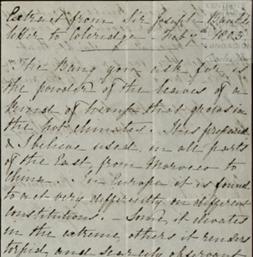 Extract from Sir Joseph Banks's
letter to Coleridge Feby 7th 1803.
"The Bang you ask for is
the powder of the leaves of a
kind of hemp that grows in
the hot climates. It is prepared
& I believe used, in all parts
of the East, from Morocco to
China. In Europe it is found
to act very differently on different
constitutions. - Some it elevates
in the extreme, others it renders
torpid, and scarcely observant